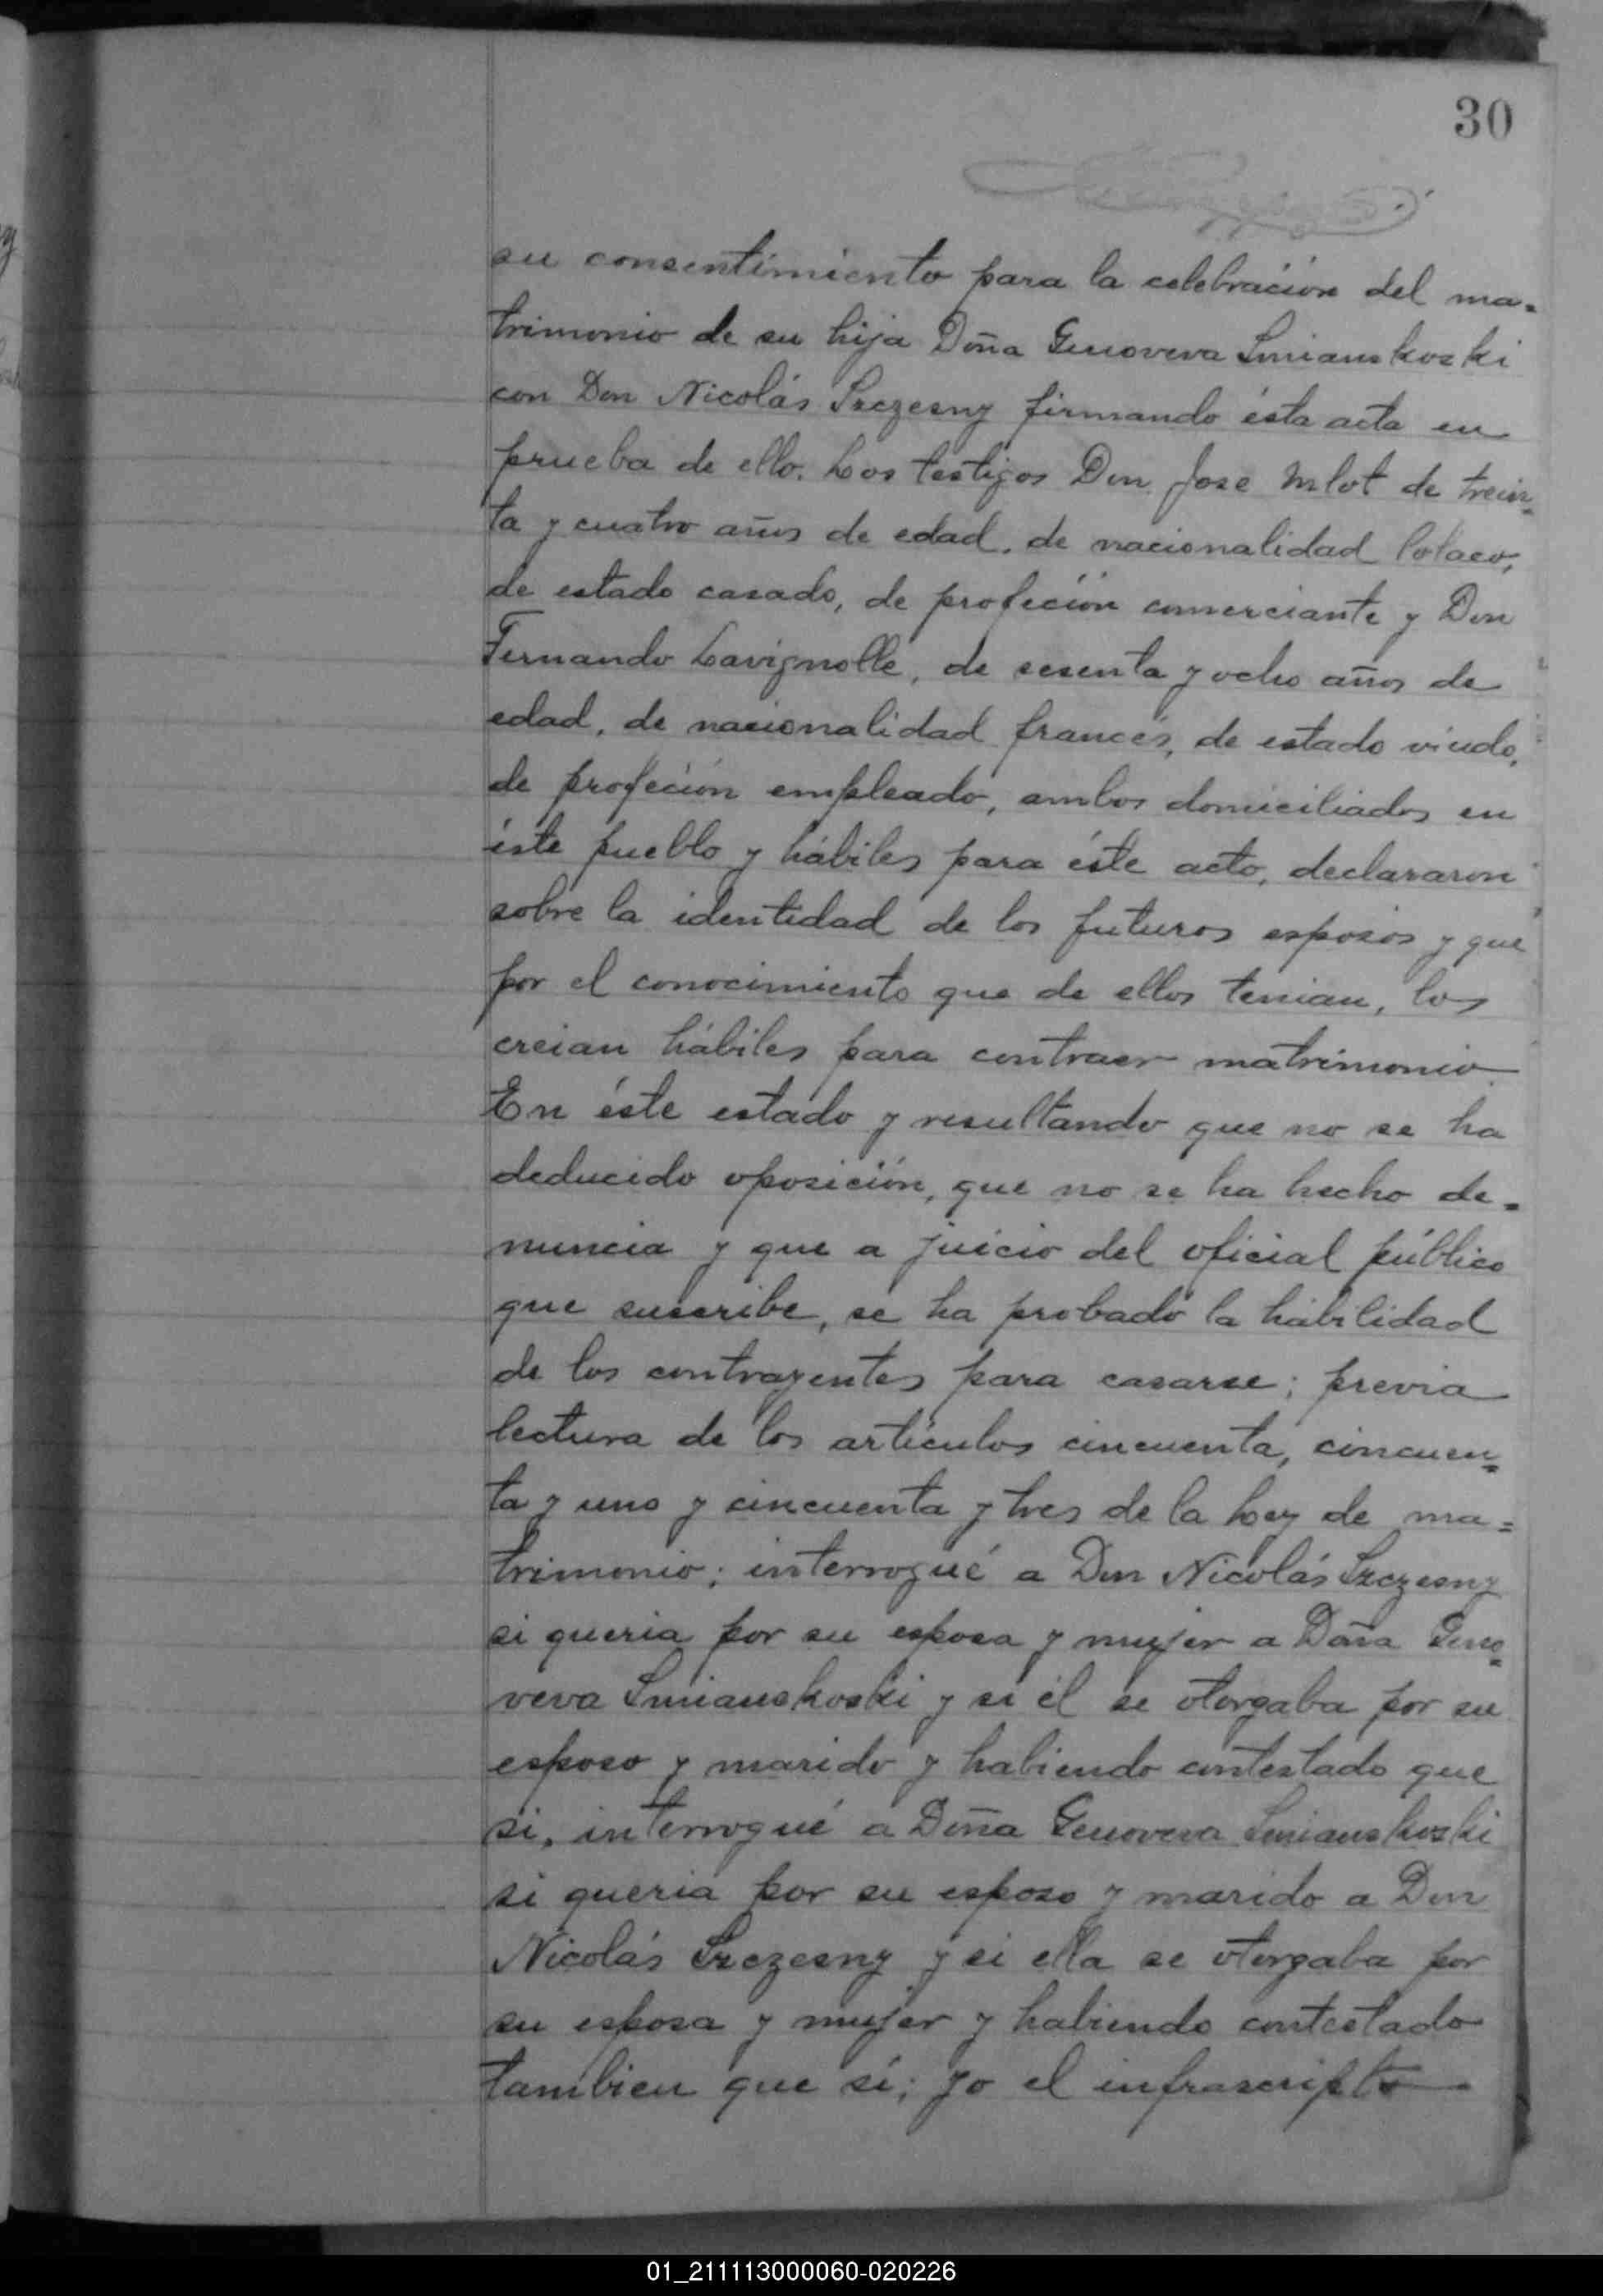 30
su consentimiento para la celebración del ma=
trimonio de su hija Doña Genoveva Smianskoski
con Don Nicolás Szczesny firmando ésta acta en
prueba de ello. Los testigos Don Jose Mlot de trein=
ta y cuatro años de edad, de nacionalidad Polaco,
de estado casado, de profeción comerciante y Don
Fernando Lavignolle, de sesenta y ocho años de
edad, de nacionalidad francés, de estado viudo,
de profeción empleado, ambos domiciliados en
éste pueblo y hábiles para éste acto, declararon
sobre la identidad de los futuros esposos y que
por el conocimiento que de ellos tenian, los
creian hábiles para contraer matrimonio.
En éste estado y resultando que no se ha
deducido oposición, que no se ha hecho de=
nuncia y que a juicio del oficial público
que suscribe, se ha probado la habilidad
de los contrayentes para casarse; previa
lectura de los artículos cincuenta, cincuen=
ta y uno y cincuenta y tres de la Ley de ma=
trimonio; interrogué a Don Nicolás Szczesny
si queria por su esposa y mujer a Doña Geno=
veva Smianskoski y si él se otorgaba por su
esposo y marido y habiendo contestado que
si, interrogué a Doña Genoveva Smianskoski
si queria por su esposo y marido a Don
Nicolás Szczesny y si ella se otorgaba por
su esposa y mujer y habiendo contestado
tambien que sí; yo el infrascripto
01_211113000060-020226